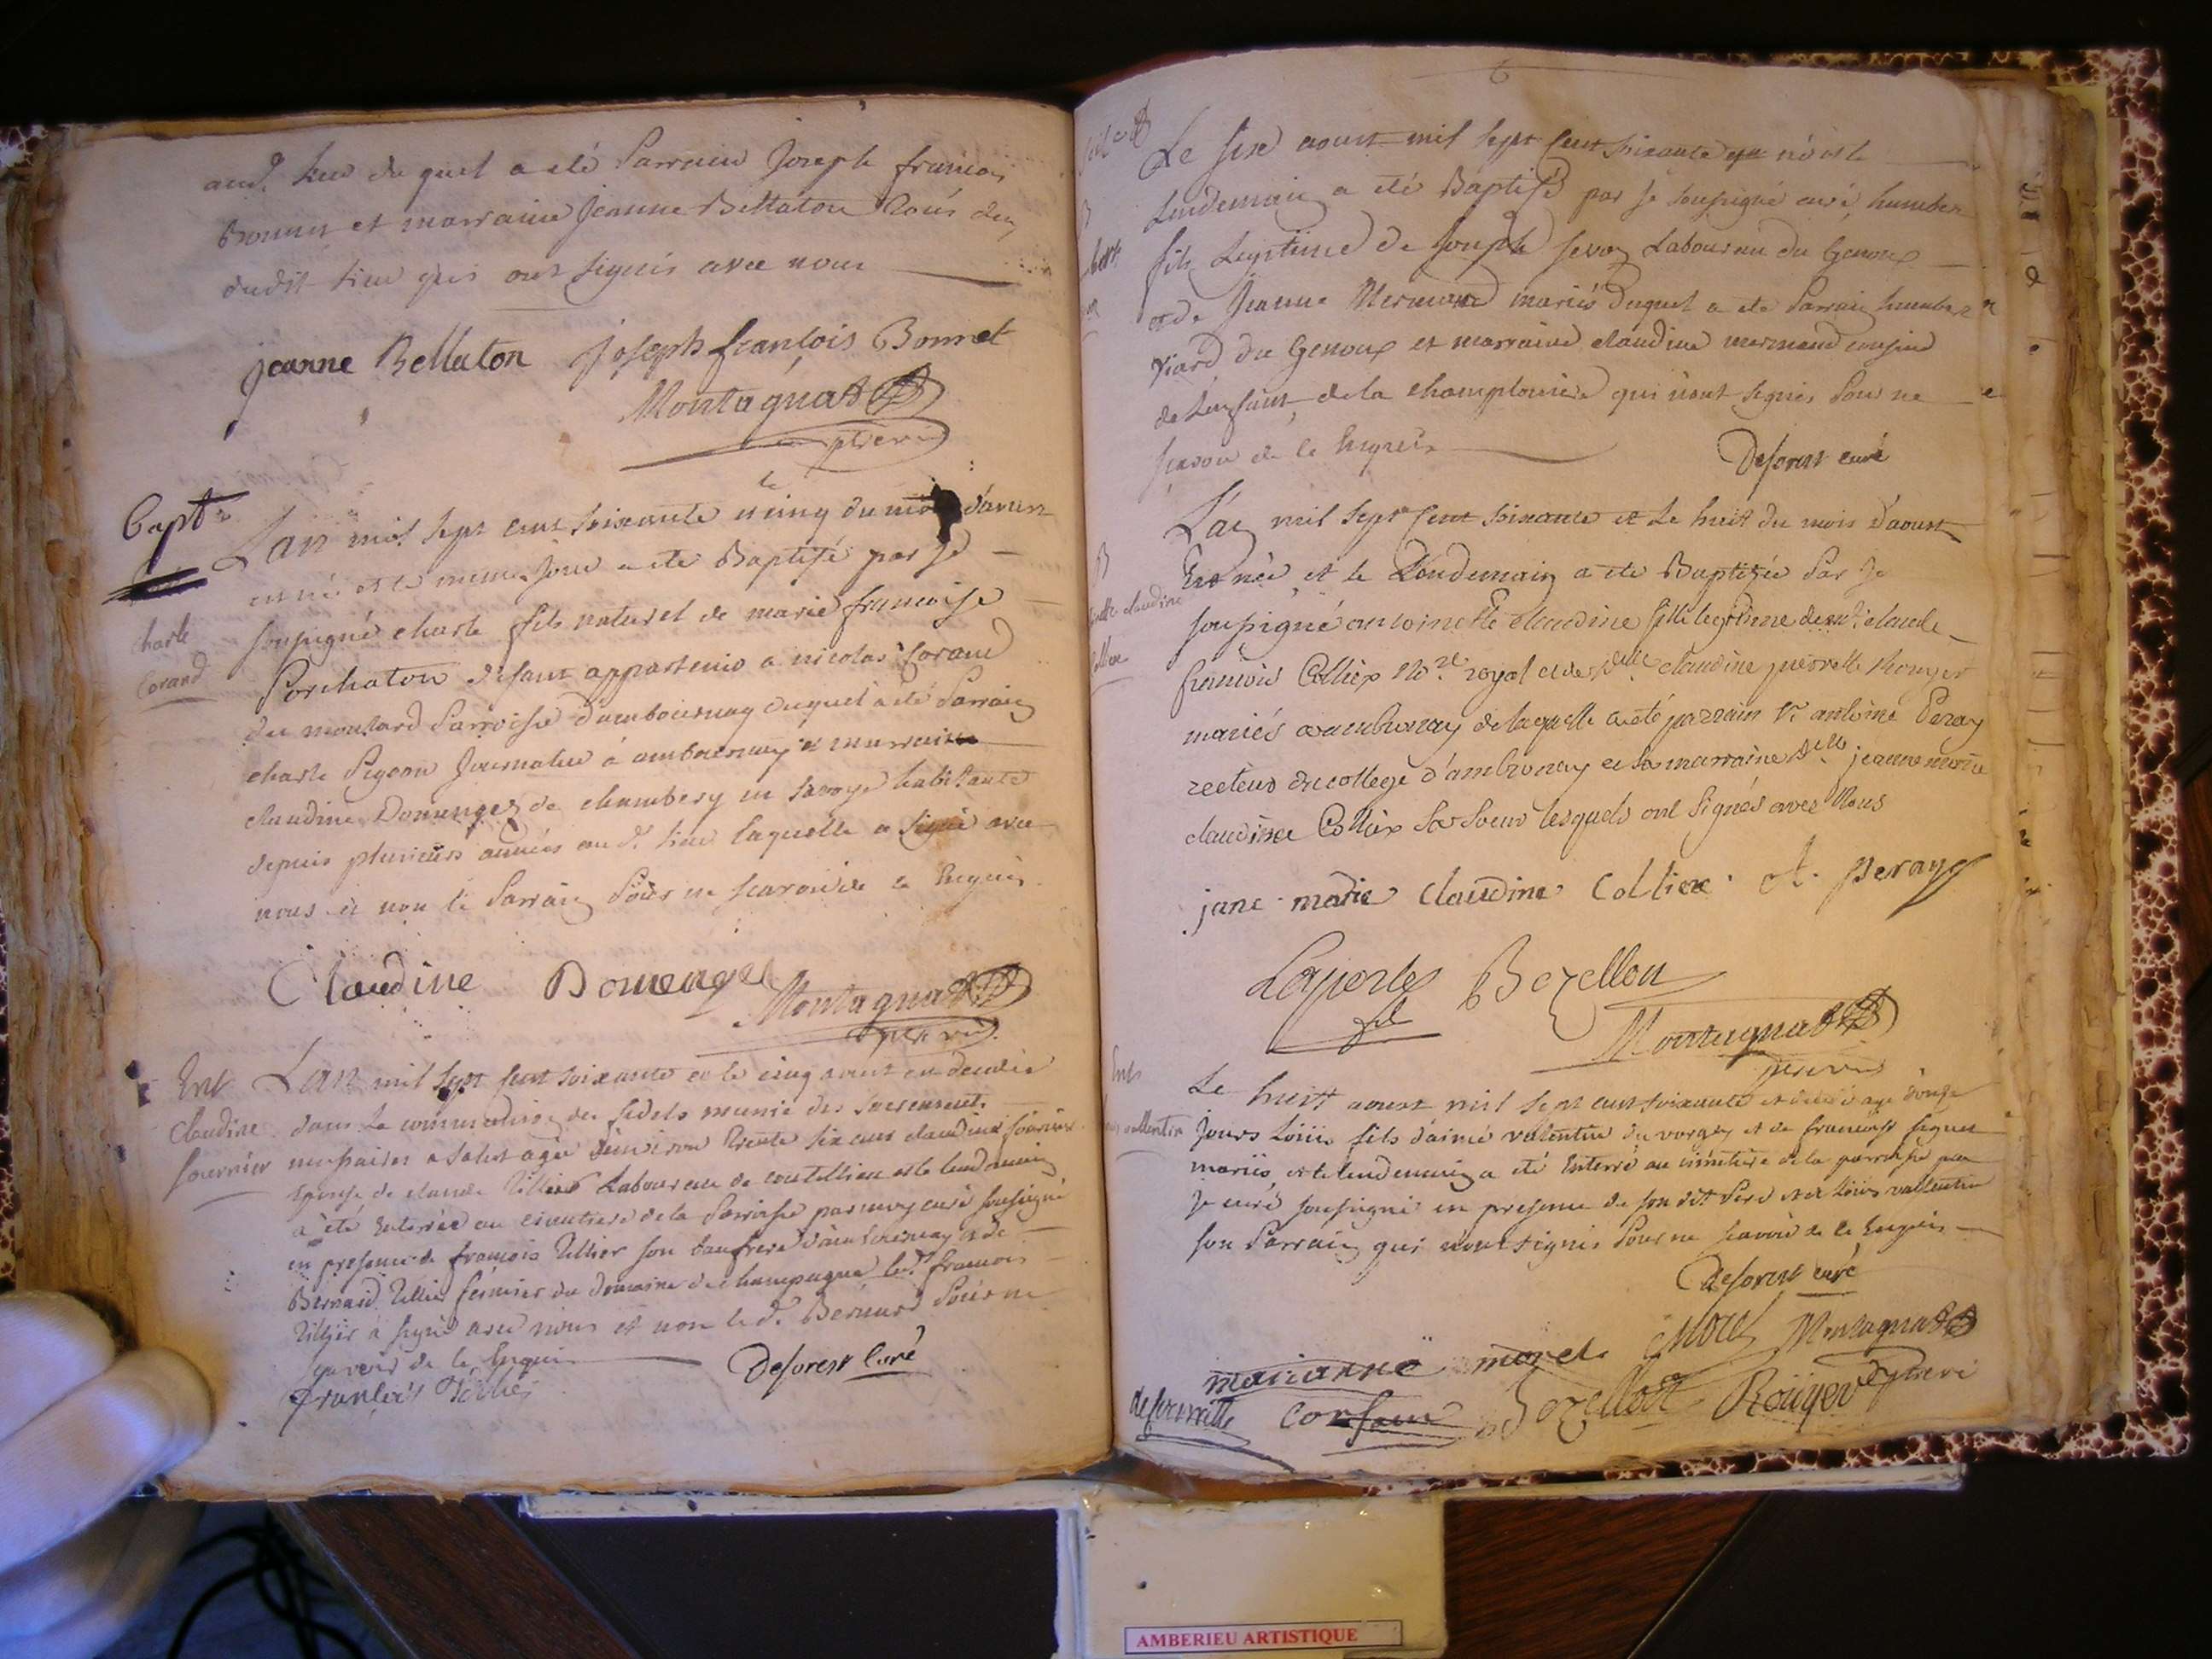 aud. lieu du quel a eté Parrain Joseph francois
Bonnet et marraine Jeanne Bellaton tous deux
dudit lieu qui ont signés avec nous
jeanne Bellaton Joseph francois Bonnet
Montagnat
Bapt
L'an mil sept cent soixante le cinq du mois d'aoust
est né et le meme jour a eté Baptisé par Je
soussigné charle fils naturel de marie francoise
charle
Corand
Porchaton disant appartenir a nicolas Corand
du moulard Parroisse d'ambournay duquel a eté Parrain
charle Pigeon Journalier à ambournay et marraine
claudine Domenget de chambery en savoye habitante
depuis plusieurs années aud. lieu laquelle a signé avec
nous et non le Parrain Pour ne scavoir de ce Enquis
Claudine Domenget
Montagnat
Ent
Claudine
fournier
L'an mil sept cent soixante et le cinq aoust est decedée
dans la communion des fidels munie des sacrements
necessaires a salut agée d'environ trente six ans claudine fournier
Epouse de claude Tillier Laboureur de coutellieu et le lendemain
a eté Enterrée au cimetiere de la Parroisse par moy curé soussigné
en presence de françois Tillier son beaufrere d'ambournay et de
Bernard Tillier fermier du domaine de champagne led. francois
Tillier a signé avec nous et non led. Bernard Pour ne
scavoir de ce Enquis
françois Tillier
Deforest Curé
6
Le six aoust mil sept cent soixante est né et le
Lendemain a eté Baptisé par Je soussigné curé humber
fils Legitime de Joseph sevoz Laboureur du Genoux
et de Jeanne Mermand mariés duquel a eté Parrain humber
viard du Genoux et marraine claudine mermand cousine
de L'enfant de la champloniere qui n'ont signés Pour ne
scavoir de ce Enquis
Deforest curé
L'an mil sept cent soixante et le huit du mois d'aoust
Est née et le Lendemain a eté Baptizée Par Je
claudine
soussigné antoinette claudine fille legitime de mr. claude
francois Colliex no.re royal et de d.elle claudine pierrette Rouyer
mariés a ambronay de laquelle a eté parrain Sr. antoine Peray
recteur du college d'ambronay et la marraine d.elle jeanne marie
claudine Colliex sa soeur lesquels ont signés avec Nous
jane marie Claudine Colliex A. peray
Laporte Bozellon
Montagnat
Ent
vallentin
Le huit aoust mil sept cent soixante est decedé agé d'onze
jours Loüis fils d'aimé valentin du vorgey et de francoise
mariés et le lendemain a eté Enterré au cimetiere de la parroisse par
Je curé soussigné en presence de son dit Pere et de Loüis vallentin
son Parrain qui n'ont signés Pour ne scavoir de ce Enquis
deforest curé
marianne morel Morel Montagnat
Bozellon Rouyer
AMBERIEU ARTISTIQUE